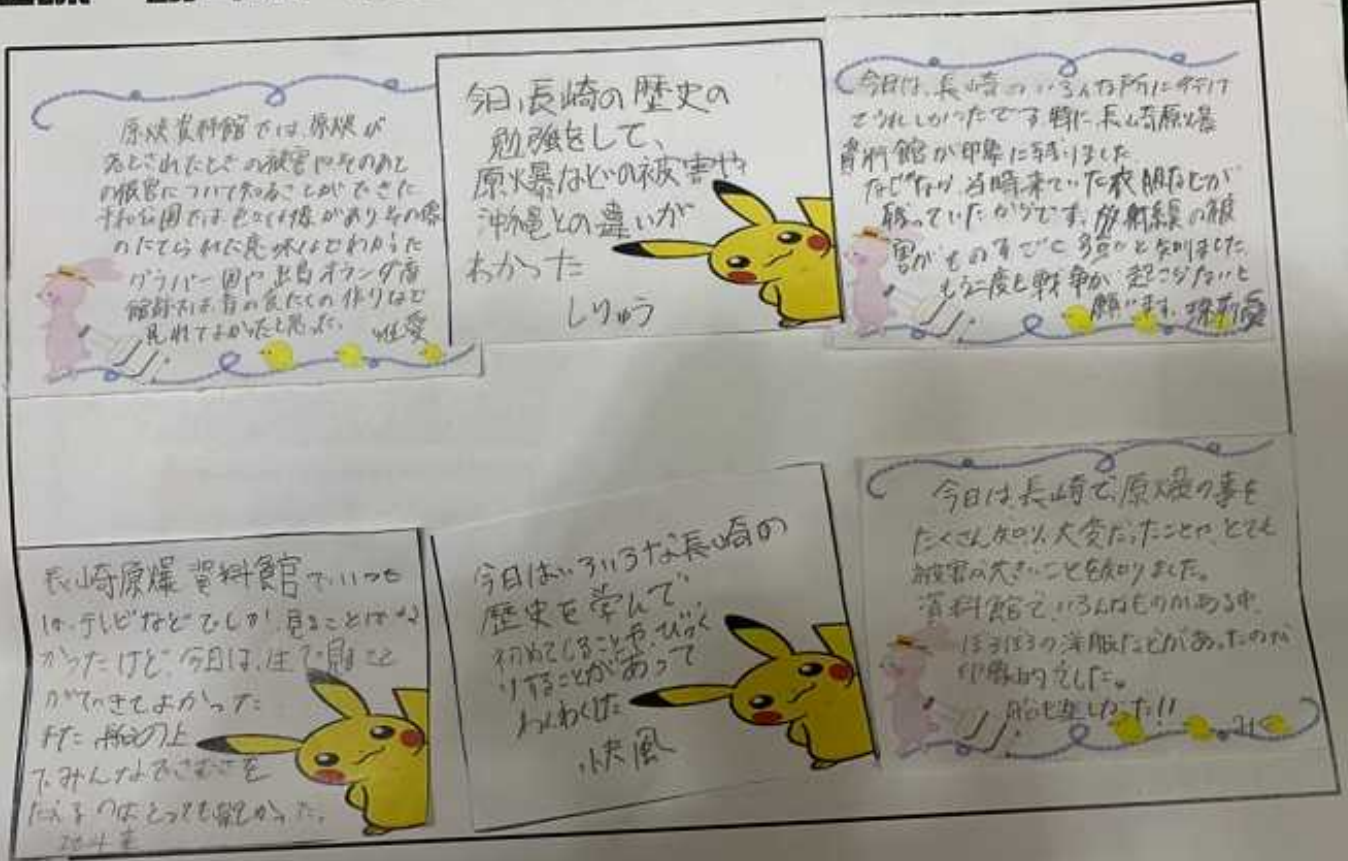 原爆資料館では、原爆が
落とされたときの被害やそのあと
の被害について知ることができた
平和公園では色々な像がありその像
のたてられた意味などわかった
グラバー園や出島オランダ商
館跡では、昔の
見れてよかったと思った。
今日、長崎の歴史の
勉強をして、
原爆などの被害や
沖縄との違いが
わかった
しりゅう
今日は、長崎のいろんな所に行け
てうれしかったです 特に長崎原爆
資料館が印象に残りました
なぜなら 当時来ていた衣服などが
残っていたからです。放射線の被
害がものすごく と知りました。
もう二度と戦争が起こらないと
願います。
長崎原爆資料館で、いつも
は、テレビなどでしか、見ることはな
かったけど、今日は、生で見ること
ができてよかった
また、船の上
で、みんなで
とっても
今日はいろいろな長崎の
歴史を学んで
初めてしることや、びっく
りすることがあって
わくわくした
今日は、長崎で、原爆の事を
たくさん知り、大変だったことや、とても
被害の大きいことを知りました。
資料館で、いろんなものがある中、
ぼろぼろの洋服などがあったのが
印象的でした。
船も楽しかった!!